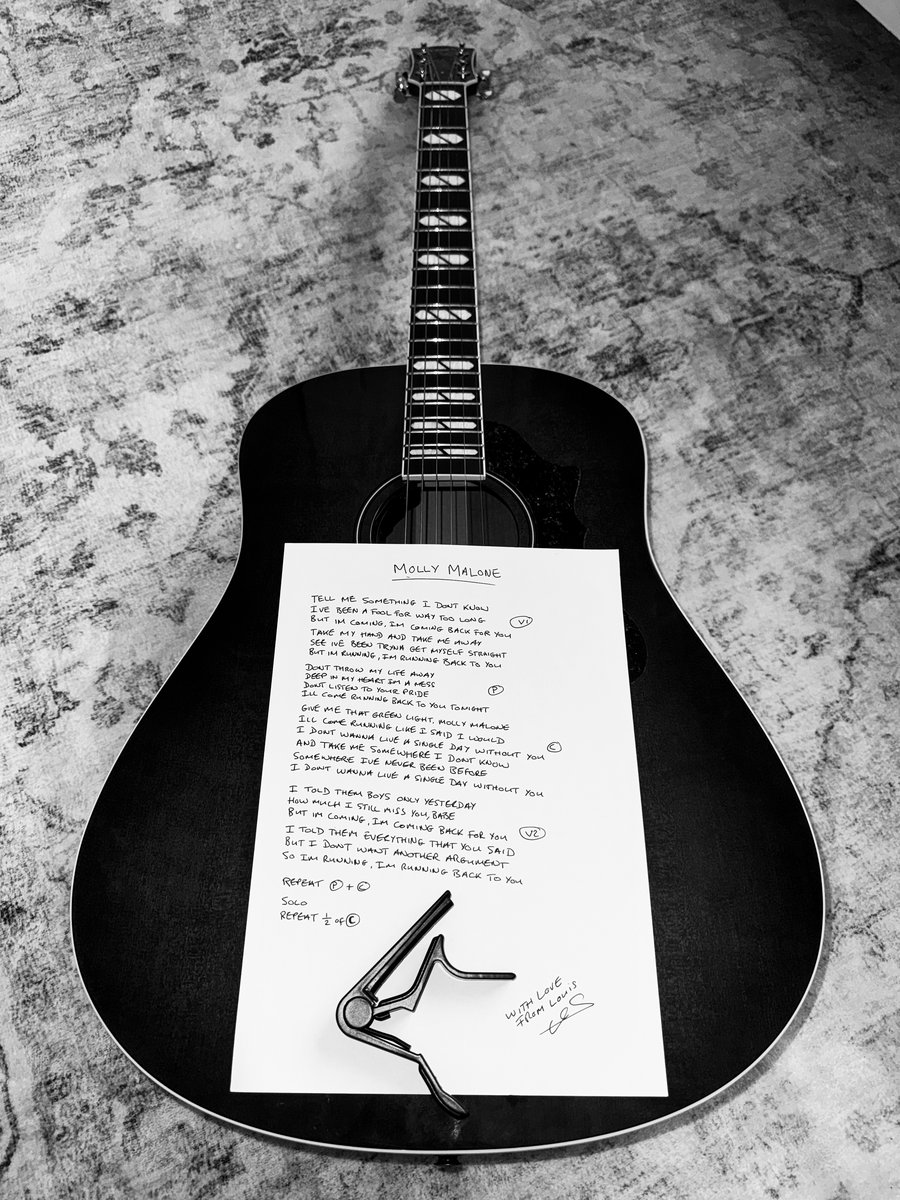 MOLLY MALONE
TELL ME SOMETHING I DONT KNOW
I'VE BEEN A FOOL FOR WAY TOO LONG
BUT IM COMING, IM COMING BACK FOR YOU
V1
TAKE MY HAND AND TAKE ME AWAY
SEE IVE BEEN TRYNA GET MYSELF STRAIGHT
BUT IM RUNNING, IM RUNNING BACK TO YOU
DONT THROW MY LIFE AWAY
DEEP IN MY HEART IM A MESS
DONT LISTEN TO YOUR PRIDE
P
ILL COME RUNNING BACK TO YOU TONIGHT
GIVE ME THAT GREEN LIGHT, MOLLY MALONE
ILL COME RUNNING LIKE I SAID I WOULD
I DONT WANNA LIVE A SINGLE DAY WITHOUT YOU
C
AND TAKE ME SOMEWHERE I DONT KNOW
SOMEWHERE IVE NEVER BEEN BEFORE
I DONT WANNA LIVE A SINGLE DAY WITHOUT YOU
I TOLD THEM BOYS ONLY YESTERDAY
HOW MUCH I STILL MISS YOU, BABE
BUT IM COMING, IM COMING BACK FOR YOU
V2
I TOLD THEM EVERYTHING THAT YOU SAID
BUT I DONT WANT ANOTHER ARGUMENT
SO IM RUNNING, IM RUNNING BACK TO YOU
REPEAT P + C
SOLO
REPEAT ½ OF C
WITH LOVE
FROM LOUIS